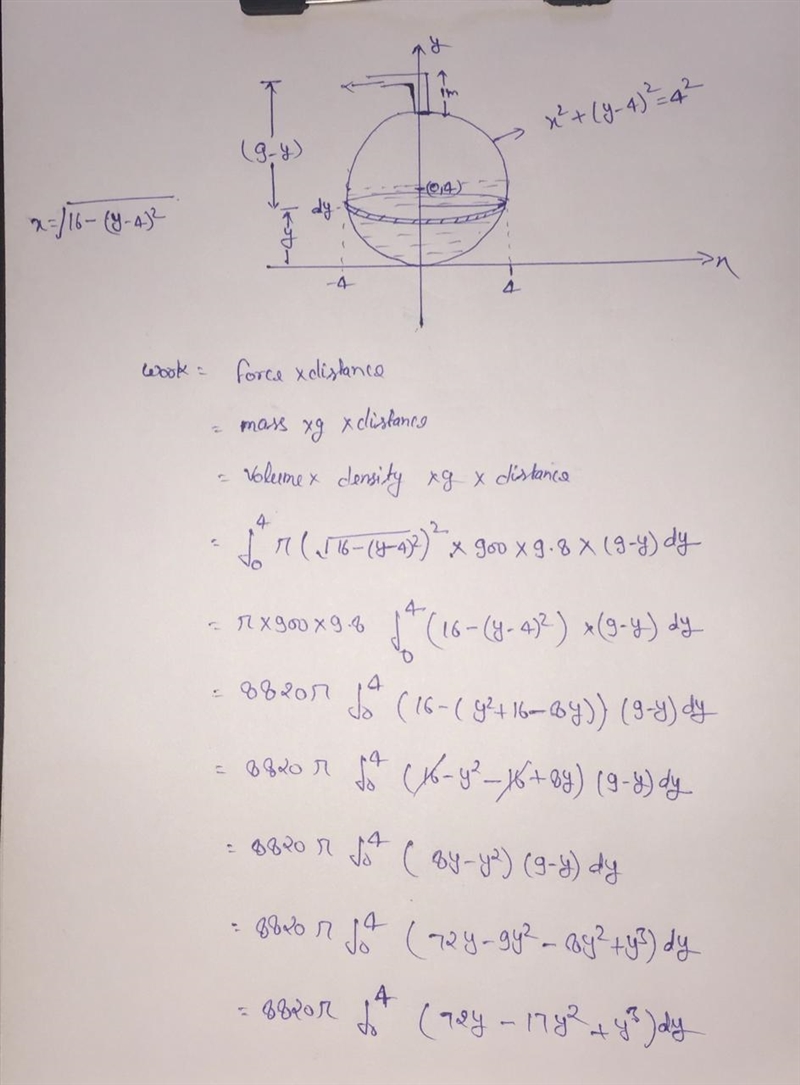 y
1m
x²+(y-4)²=4²
(9-y)
(0,4)
x=√16-(y-4)²
dy
y
-4
4
x
work = force × distance
= mass × g × distance
= Volume × density × g × distance
= ∫₀⁴ π(√16-(y-4)²)² × 900 × 9.8 × (9-y) dy
= π × 900 × 9.8 ∫₀⁴ (16-(y-4)²) × (9-y) dy
= 8820π ∫₀⁴ (16-(y²+16-8y)) (9-y) dy
= 8820π ∫₀⁴ (16-y²-16+8y) (9-y) dy
= 8820π ∫₀⁴ (8y-y²) (9-y) dy
= 8820π ∫₀⁴ (72y-9y²-8y²+y³) dy
= 8820π ∫₀⁴ (72y-17y²+y³) dy